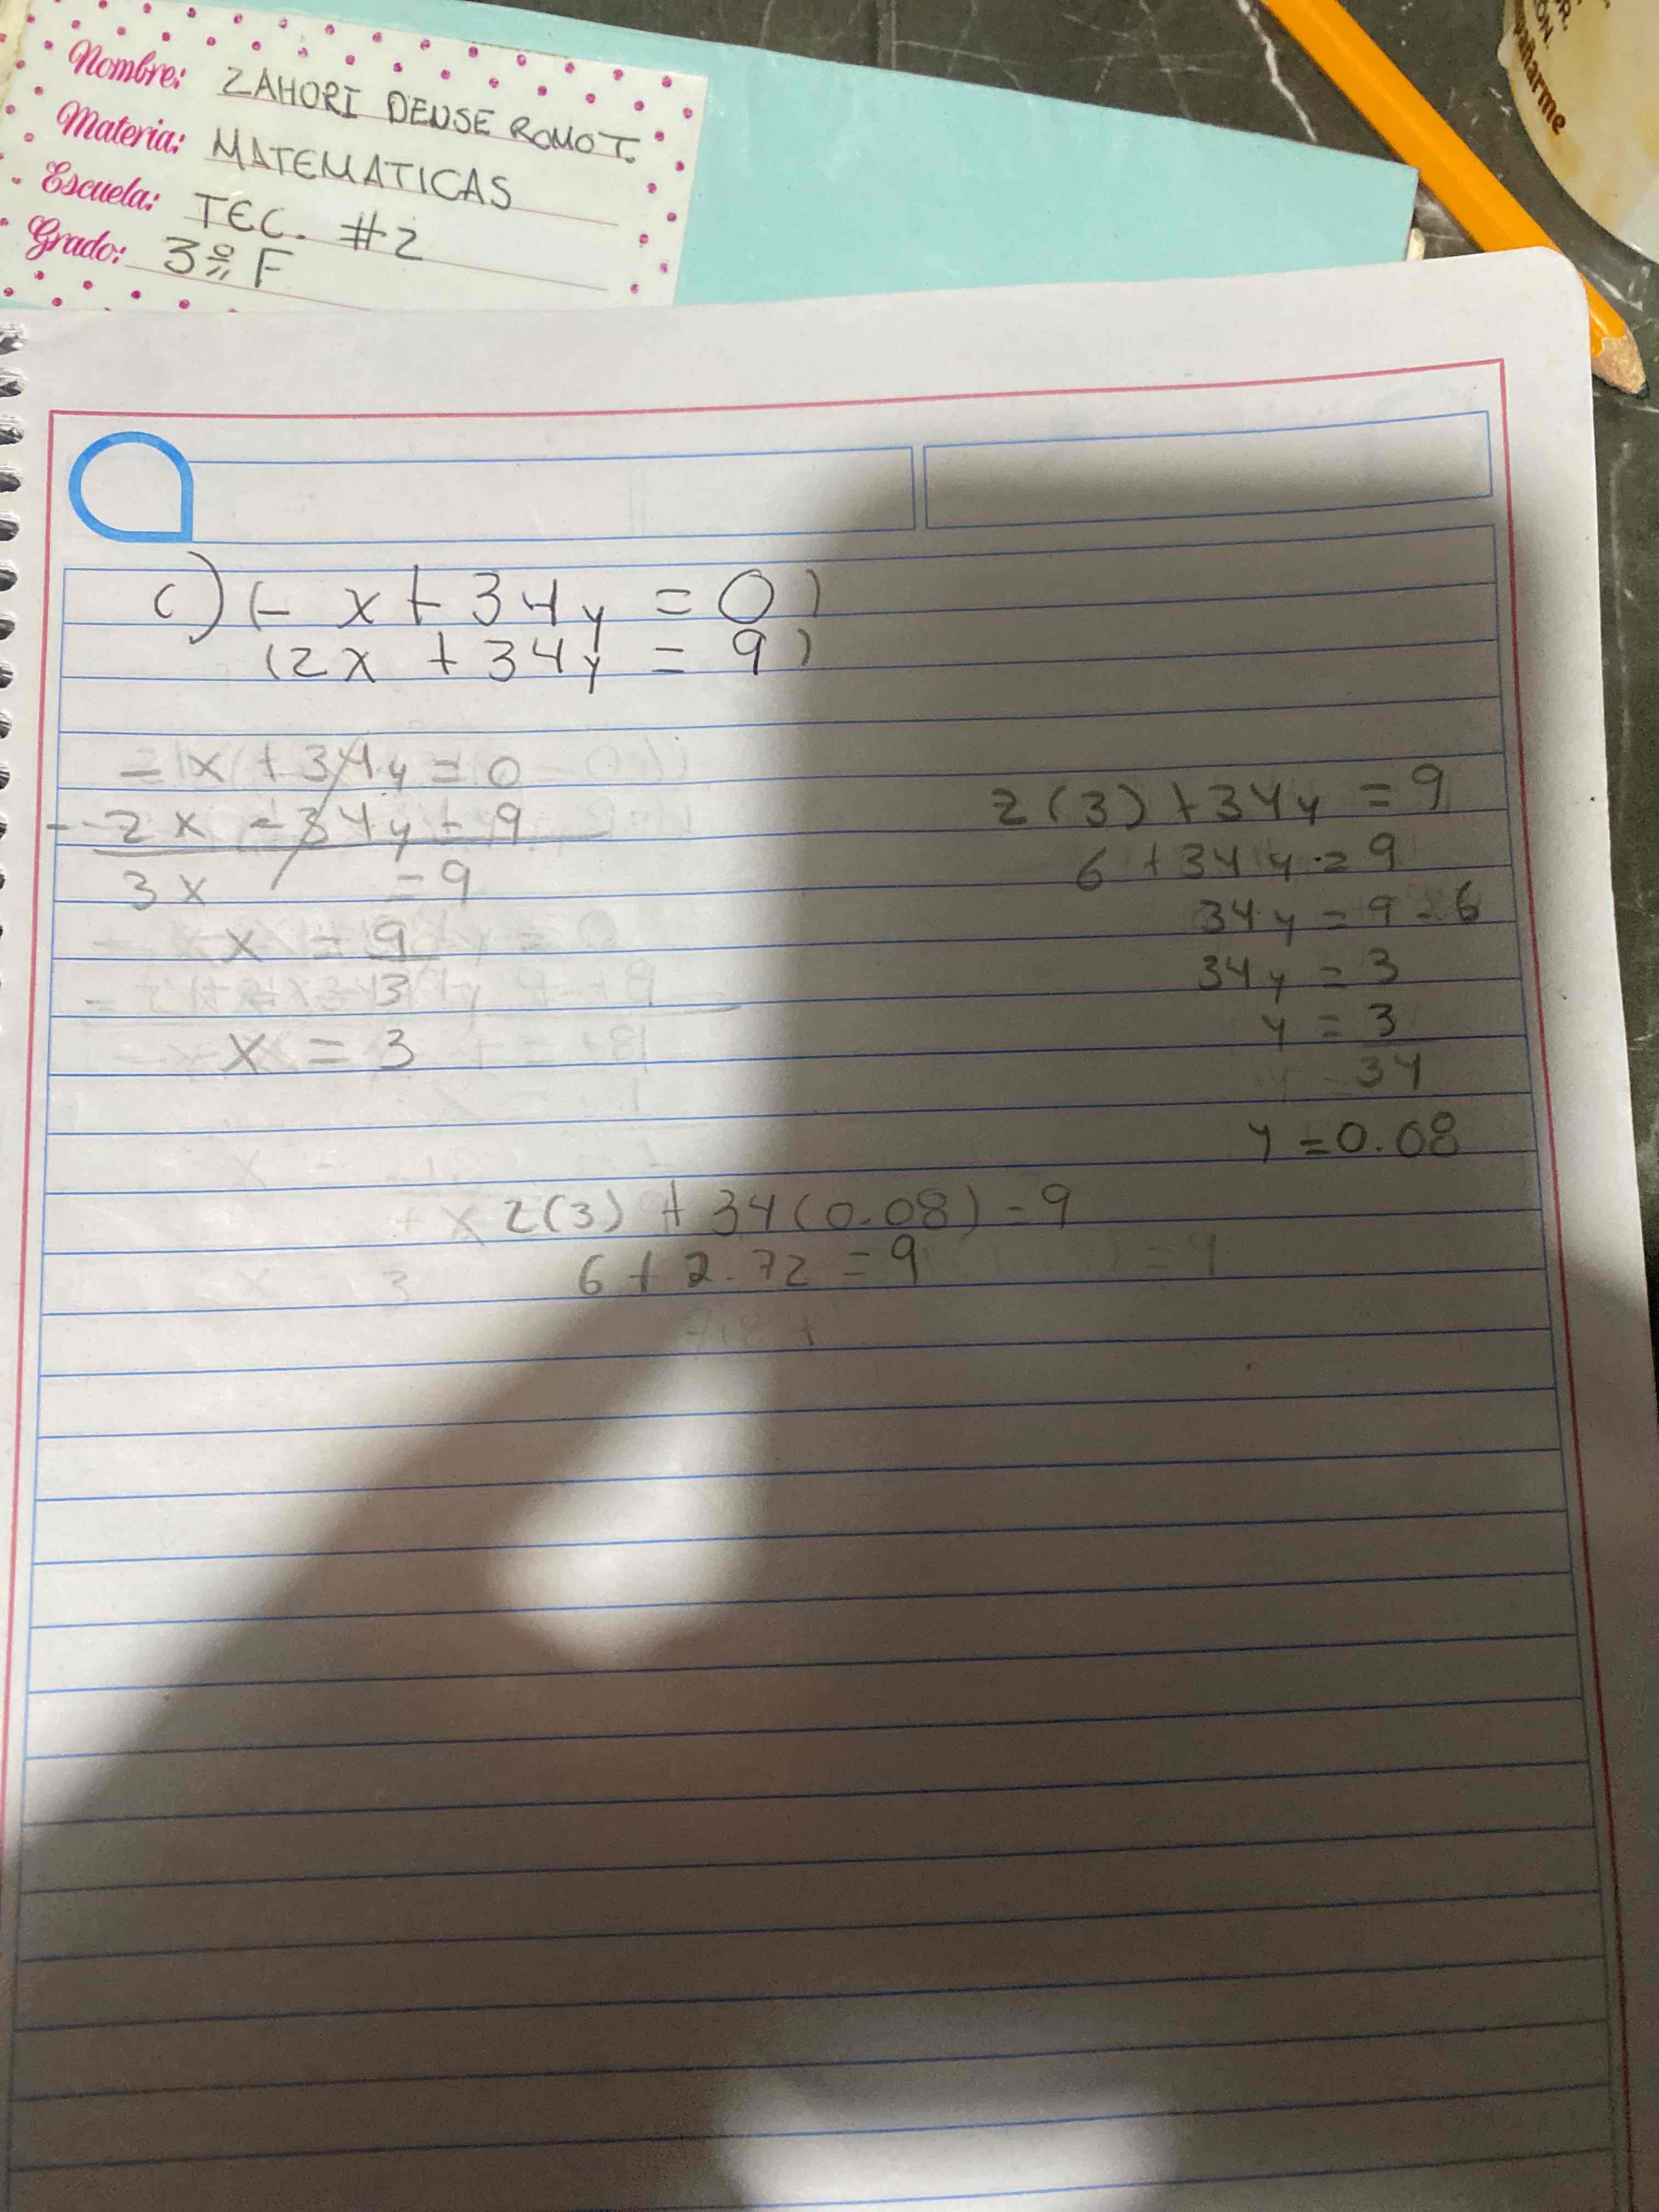 Nombre: ZAHORI DENSE ROMO T.
Materia: MATEMATICAS
Escuela: TEC. #2
Grado: 3º F
pañarme
c) (- x + 34y = 0)
(2x + 34y = 9)
- 1x + 34y = 0
- 2x - 34y - 9
3x = 9
x = 9
3
x = 3
2(3) + 34y = 9
6 + 34y = 9
34y = 9 - 6
34y = 3
y = 3
34
y = 0.08
2(3) + 34(0.08) = 9
6 + 2.72 = 9